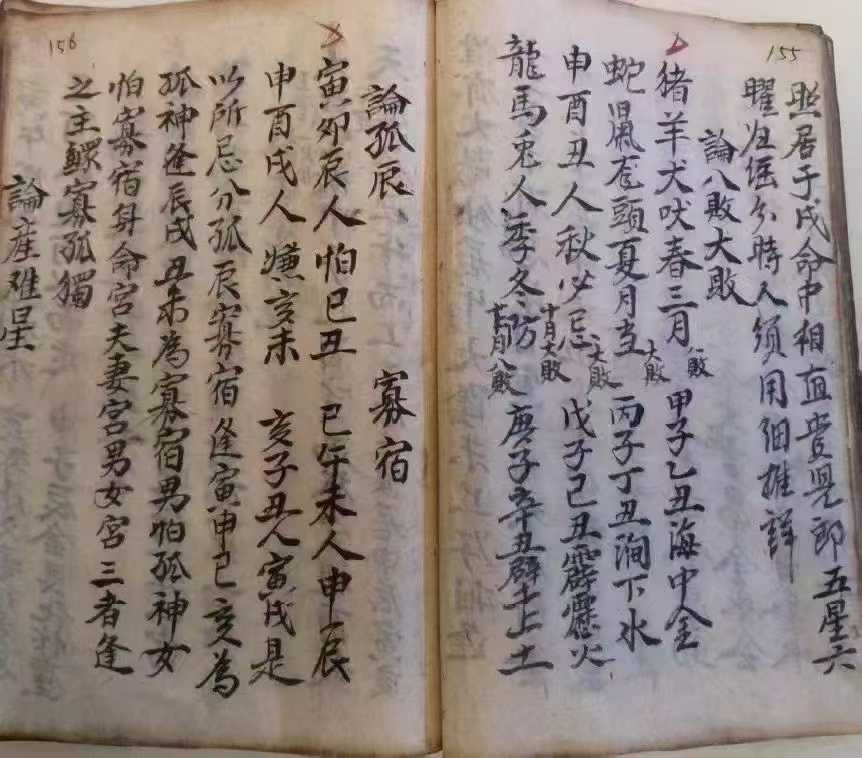 155
照居子戌命中相直贵晃郎五星六
曜为缊分時人须用細推詳
論八敗大敗
猪羊犬吠春三月 八敗 甲子乙丑海中金
蛇鼠頭夏月当 大敗 丙子丁丑涧下水
申酉丑人秋必忌 大敗 戊子己丑霹靂火
龍馬兎人季冬防 十月大敗 十月八敗 庚子辛丑壁上土
156
論孤辰 寡宿
寅卯辰人怕巳丑 巳午未人申辰
申酉戌人嫌亥未 亥子丑人寅戌是
以所忌分孤辰寡宿逢寅申巳亥為
孤神逢辰戌丑未為寡宿男怕孤神女
怕寡宿身命宮夫妻宮男女宮三者逢
之主鰥寡孤獨
論産难星